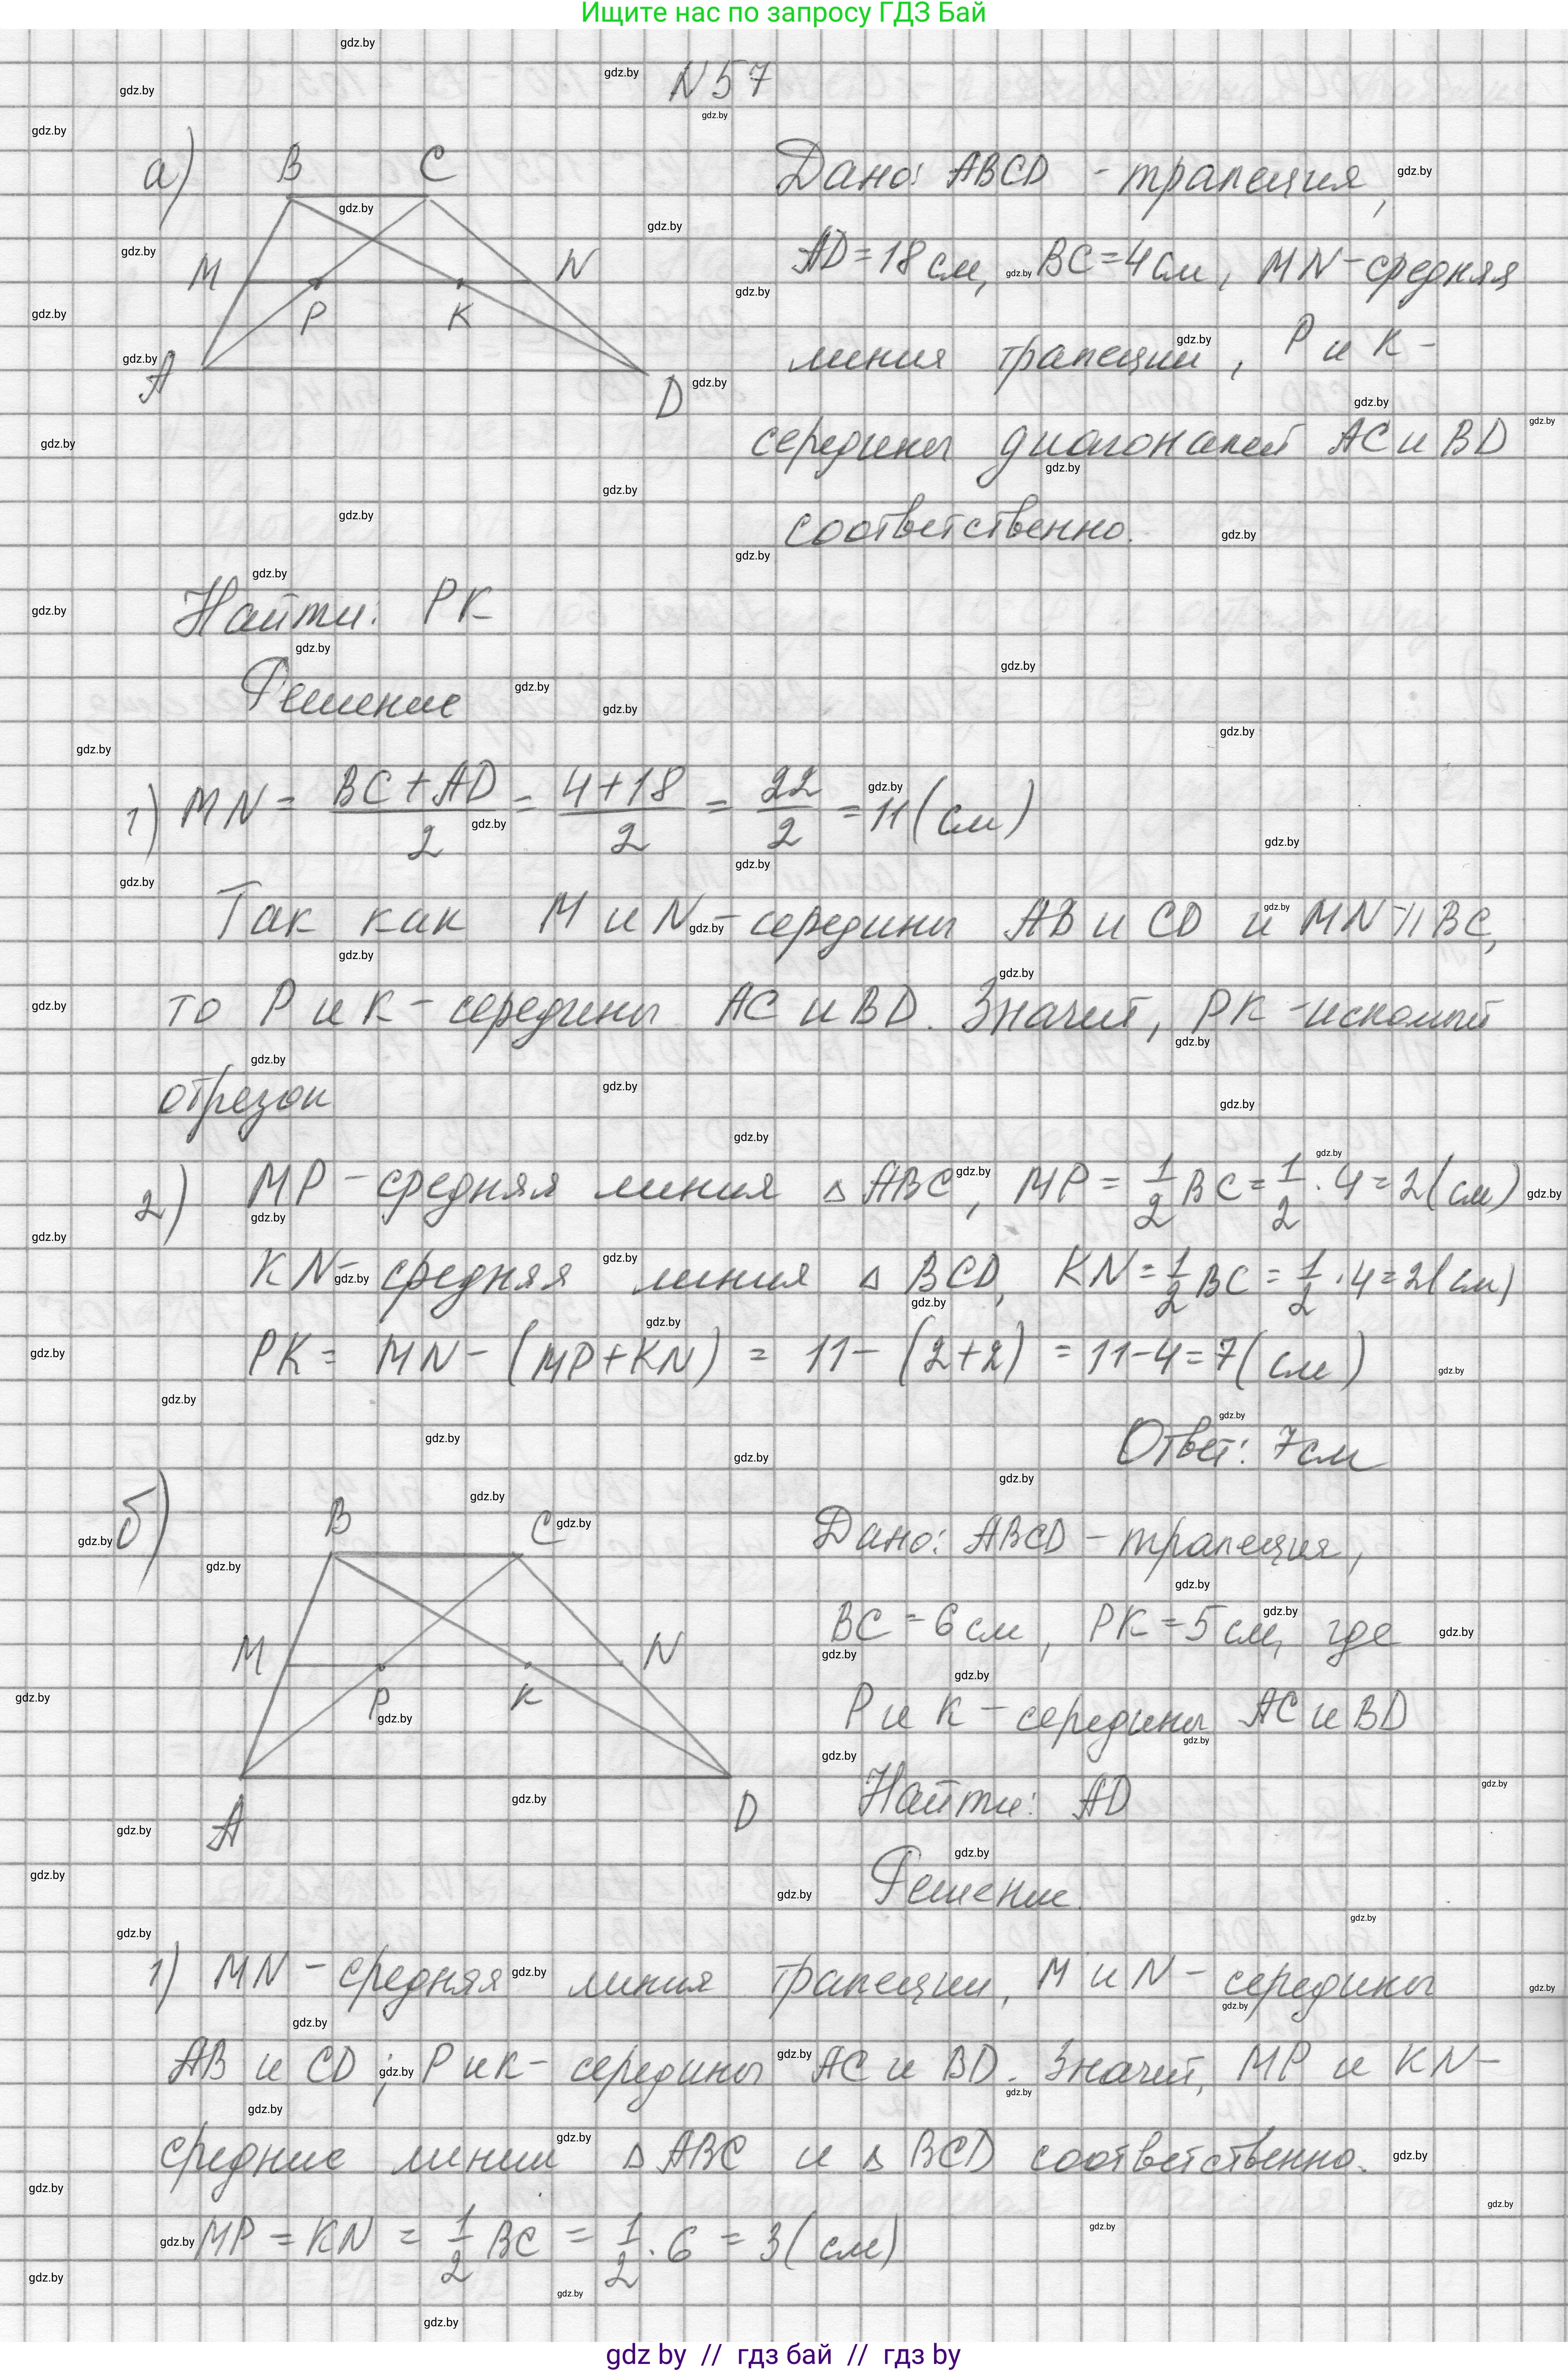 Ищите нас по запросу ГДЗ Бай
N 57
а)
B C
M N
P K
A D
Дано: ABCD - трапеция,
AD = 18 см, BC = 4 см, MN - средняя
линия трапеции, P и K -
середины диагоналей AC и BD
соответственно.
Найти: PK
Решение
1) MN = \frac{BC + AD}{2} = \frac{4 + 18}{2} = \frac{22}{2} = 11 (см)
Так как M и N - середины AB и CD и MN || BC,
то P и K - середины AC и BD. Значит, PK - искомый
отрезок
2) MP - средняя линия △ ABC, MP = \frac{1}{2} BC = \frac{1}{2} · 4 = 2 (см)
KN - средняя линия △ BCD, KN = \frac{1}{2} BC = \frac{1}{2} · 4 = 2 (см)
PK = MN - (MP + KN) = 11 - (2 + 2) = 11 - 4 = 7 (см)
Ответ: 7 см
б)
B C
M N
P K
A D
Дано: ABCD - трапеция,
BC = 6 см, PK = 5 см, где
P и K - середины AC и BD
Найти: AD
Решение.
1) MN - средняя линия трапеции, M и N - середины
AB и CD; P и K - середины AC и BD. Значит, MP и KN -
средние линии △ ABC и △ BCD соответственно.
MP = KN = \frac{1}{2} BC = \frac{1}{2} · 6 = 3 (см)
gdz by // гдз бай // гдз by